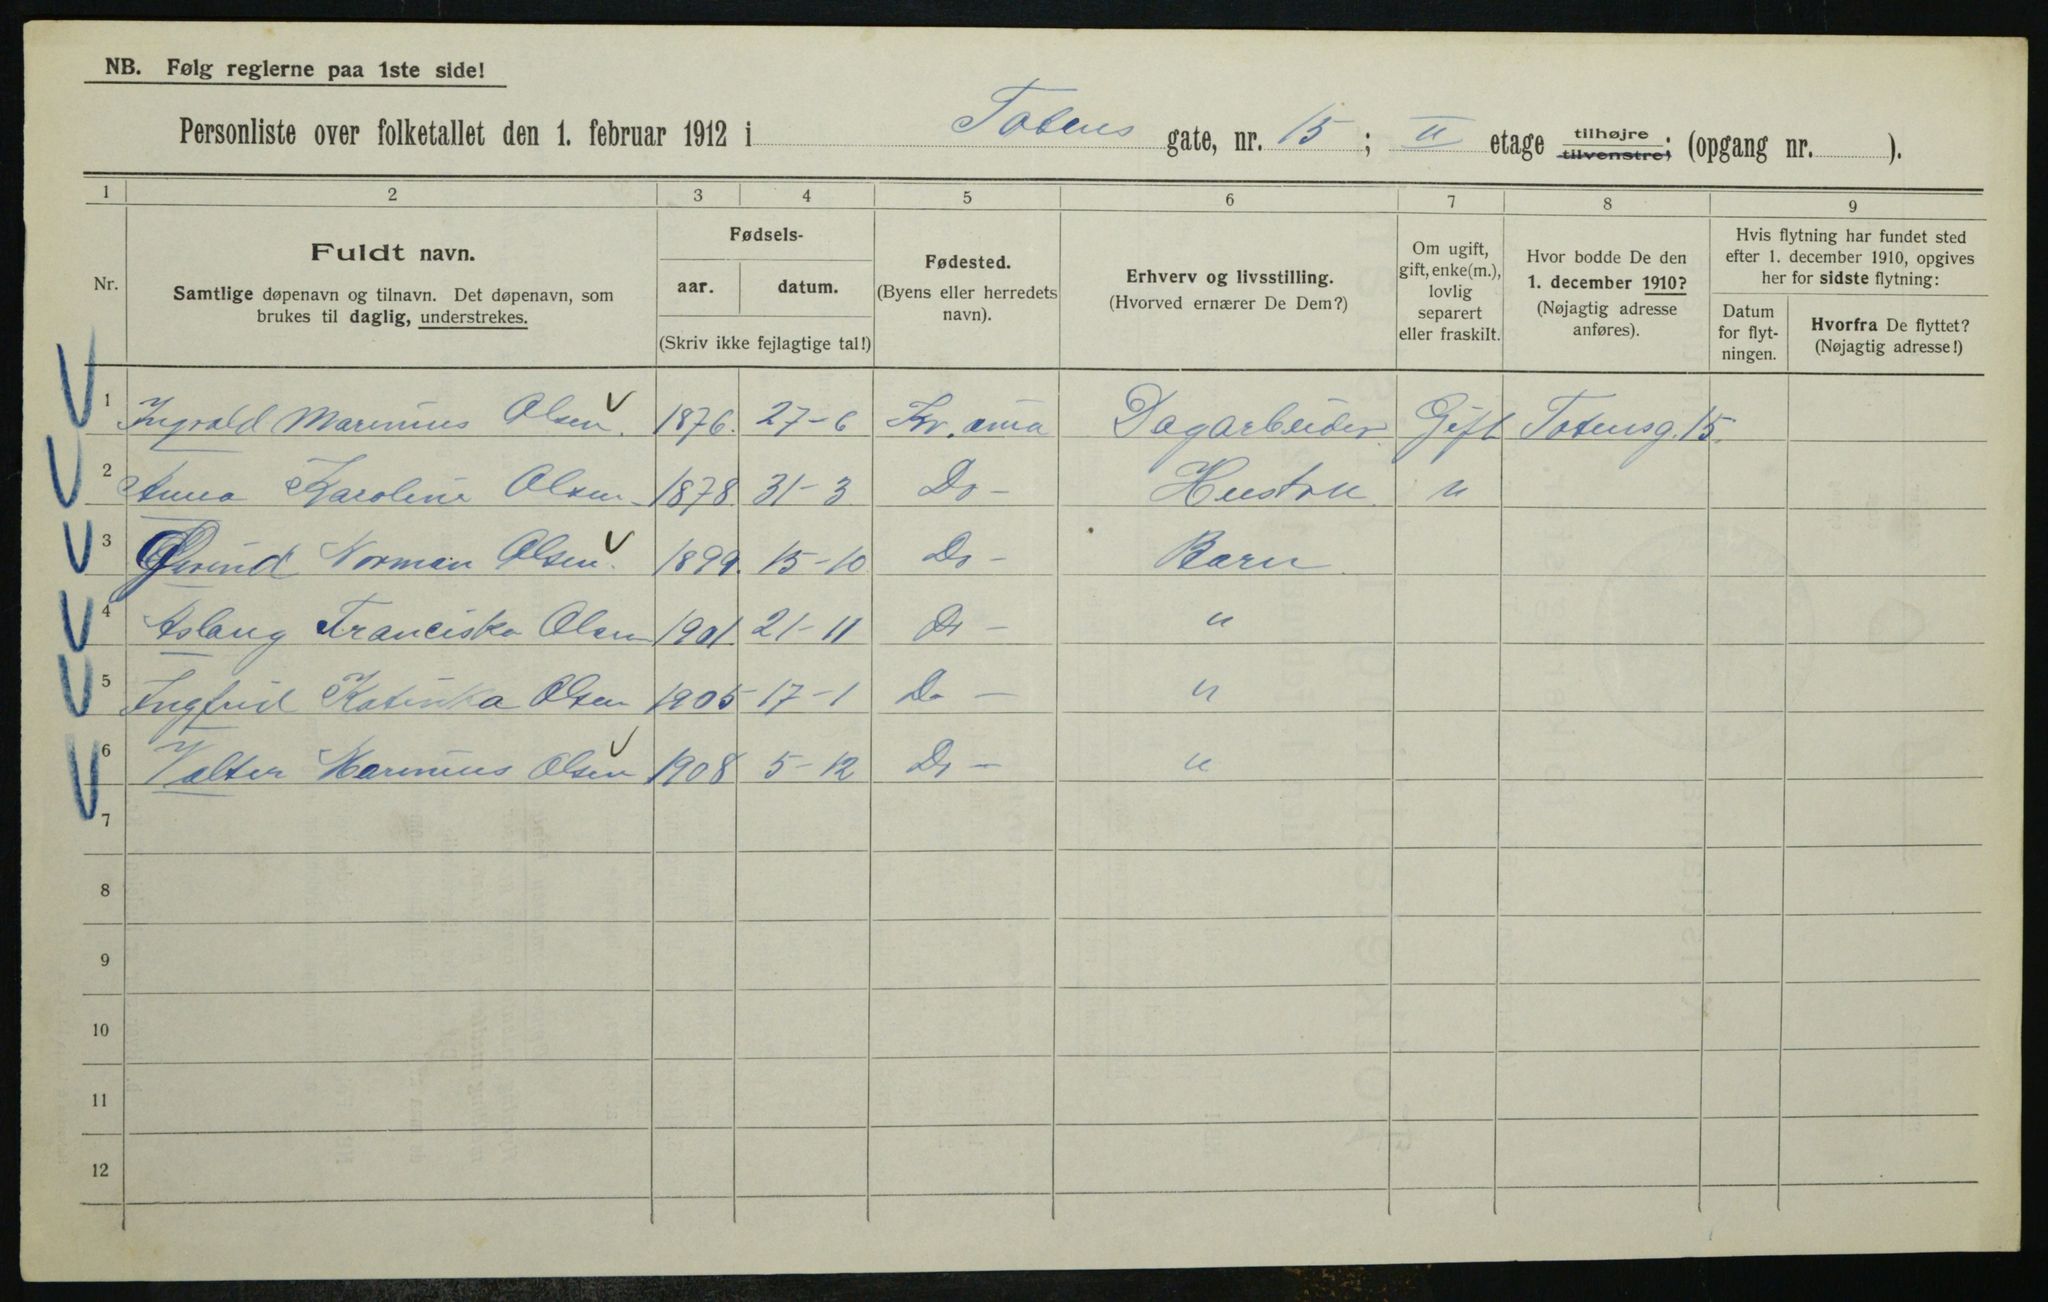 NB. Følg reglerne paa 1ste side!
Personliste over folketallet den 1. februar 1912 i Totens gate, nr. 15; II etage tilhøjre tilvenstre; (opgang nr. ).
1 2 3 4 5 6 7 8 9
Nr.
Fuldt navn.
Samtlige døpenavn og tilnavn. Det døpenavn, som
brukes til daglig, understrekes.
Fødsels-
aar. datum.
(Skriv ikke fejlagtige tal!)
Fødested.
(Byens eller herredets
navn).
Erhverv og livsstilling.
(Hvorved ernærer De Dem?)
Om ugift,
gift, enke(m.),
lovlig
separert
eller fraskilt.
Hvor bodde De den
1. december 1910?
(Nøjagtig adresse
anføres).
Hvis flytning har fundet sted
efter 1. december 1910, opgives
her for sidste flytning:
Datum
for flyt-
ningen.
Hvorfra De flyttet?
(Nøjagtig adresse!)
1 Ingvald Marinius Olsen 1876. 27-6 Kr.ania Dagarbeider Gift Totensg. 15.
2 Anna Karoline Olsen 1878 31-3 Do - Hustru "
3 Øivind Norman Olsen 1899. 15-10 Do - Barn
4 Aslaug Franciska Olsen 1901 21-11 Do - "
5 Ingfrid Katinka Olsen 1905 17-1 Do - "
6 Valter Marinius Olsen 1908 5-12 Do - "
7
8
9
10
11
12